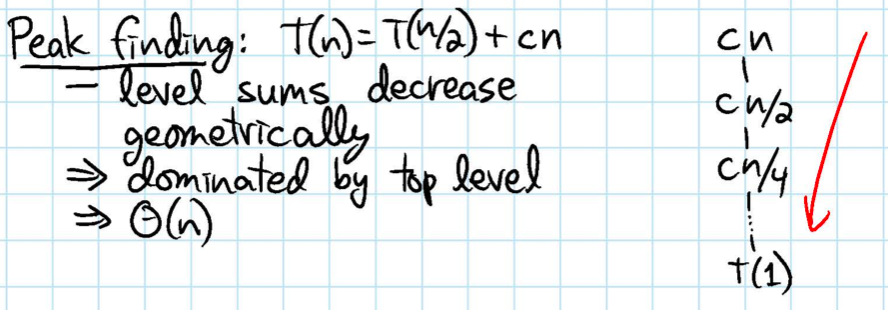 Peak finding: T(n) = T(n/2) + cn
- level sums decrease
geometrically
⇒ dominated by top level
⇒ Θ(n)
cn
cn/2
cn/4
T(1)